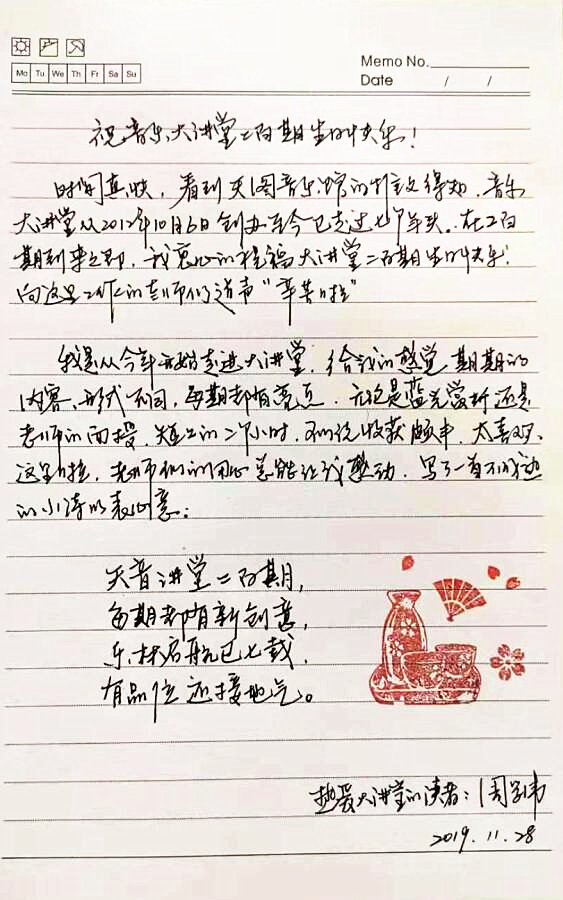 Memo No.
Mo Tu We Th Fr Sa Su
Date / /
祝音乐大讲堂二百期生日快乐！
时间真快，看到天图音乐馆的推文得知，音乐
大讲堂从2012年10月6日创办至今已走过七个年头。在二百
期到来之即，我衷心的祝福大讲堂二百期生日快乐！
向这里工作的老师们道声“辛苦啦”
我是从今年开始走进大讲堂，给我的感觉期期的
内容、形式不同，每期都有亮点，无论是蓝光赏析还是
老师的面授，短短的二个小时，可以说收获颇丰，太喜欢
这里啦，老师们的用心总能让我感动，写了一首不成熟
的小诗以表心意：
天音讲堂二百期，
每期都有新创意，
乐林启航已七载，
有品位还接地气。
热爱大讲堂的读者：周学伟
2019.11.28